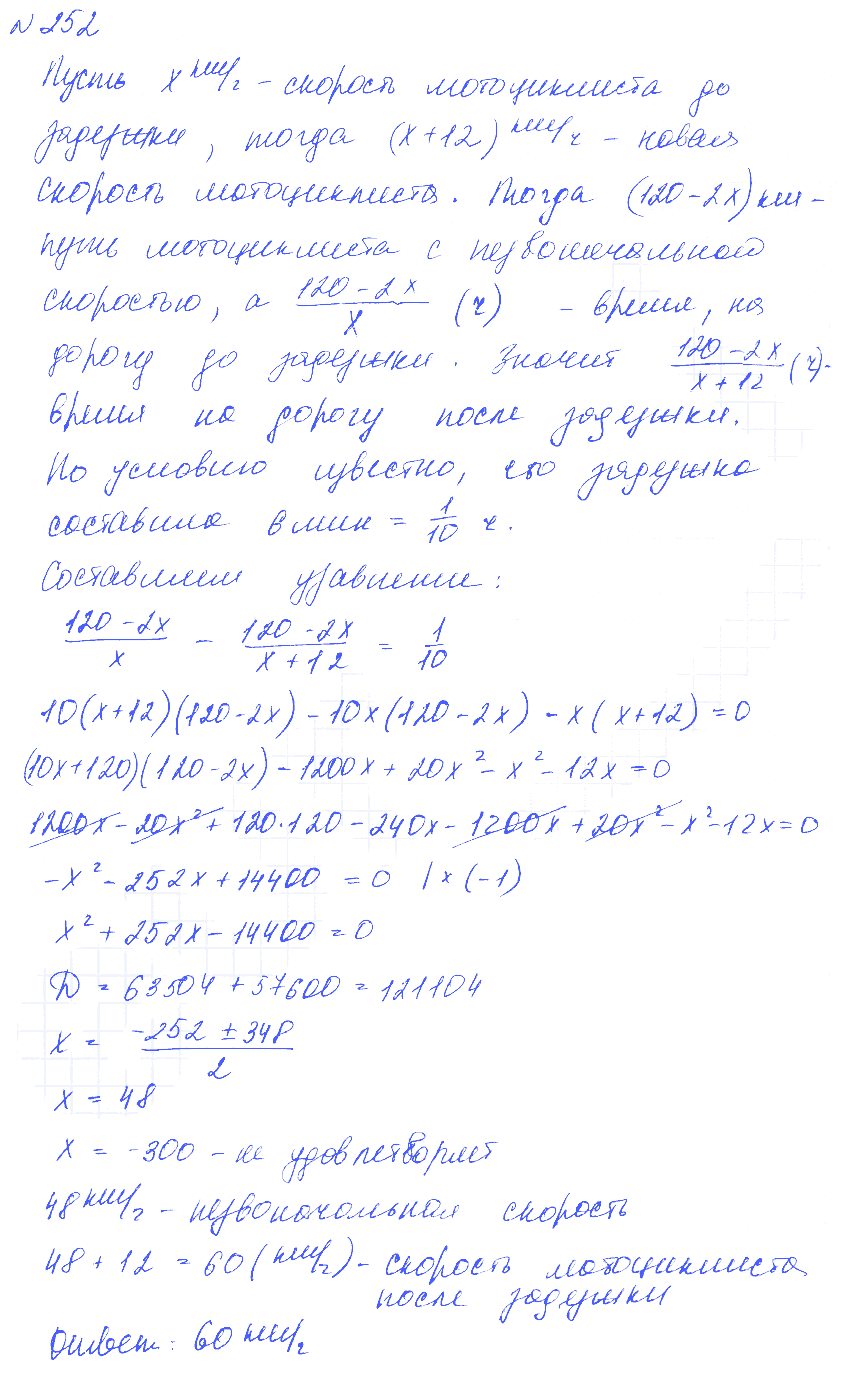 N 252
Пусть x км/ч – скорость мотоциклиста до
задержки, тогда (x+12) км/ч – новая
скорость мотоциклиста. Тогда (120-2x) км –
путь мотоциклиста с первоначальной
скоростью, а (120-2x)/x (ч) – время, на
дорогу до задержки. Значит (120-2x)/(x+12) (ч)-
время на дорогу после задержки.
По условию известно, что задержка
составила 6 мин = 1/10 ч.
Составляем уравнение:
(120-2x)/x - (120-2x)/(x+12) = 1/10
10(x+12)(120-2x) - 10x(120-2x) - x(x+12) = 0
(10x+120)(120-2x) - 1200x + 20x² - x² - 12x = 0
1200x - 20x² + 120·120 - 240x - 1200x + 20x² - x² - 12x = 0
-x² - 252x + 14400 = 0 |×(-1)
x² + 252x - 14400 = 0
D = 63504 + 57600 = 121104
x = (-252 ± 348)/2
x = 48
x = -300 – не удовлетворяет
48 км/ч – первоначальная скорость
48 + 12 = 60 (км/ч) – скорость мотоциклиста
после задержки
Ответ: 60 км/ч